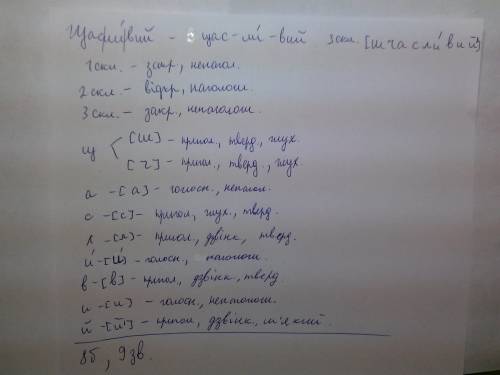 Щасли́вий - щас-ли́-вий 3 скл. [шчасли́вий]
1 скл. - закр., непагол.
2 скл. - відкр., наголош.
3 скл. - закр., ненаголош.
щ [ш] - пригол., тверд., глух.
[ч] - пригол., тверд., глух.
а - [а] - голосн., ненагол.
с - [с] - пригол., глух., тверд.
л - [л] - пригол., дзвінк., тверд.
и́ - [и́] - голосн., наголош.
в - [в] - пригол., дзвінк., тверд.
и - [и] - голосн., ненаголош.
й - [й] - пригол., дзвінк., м'який.
8б, 9зв.